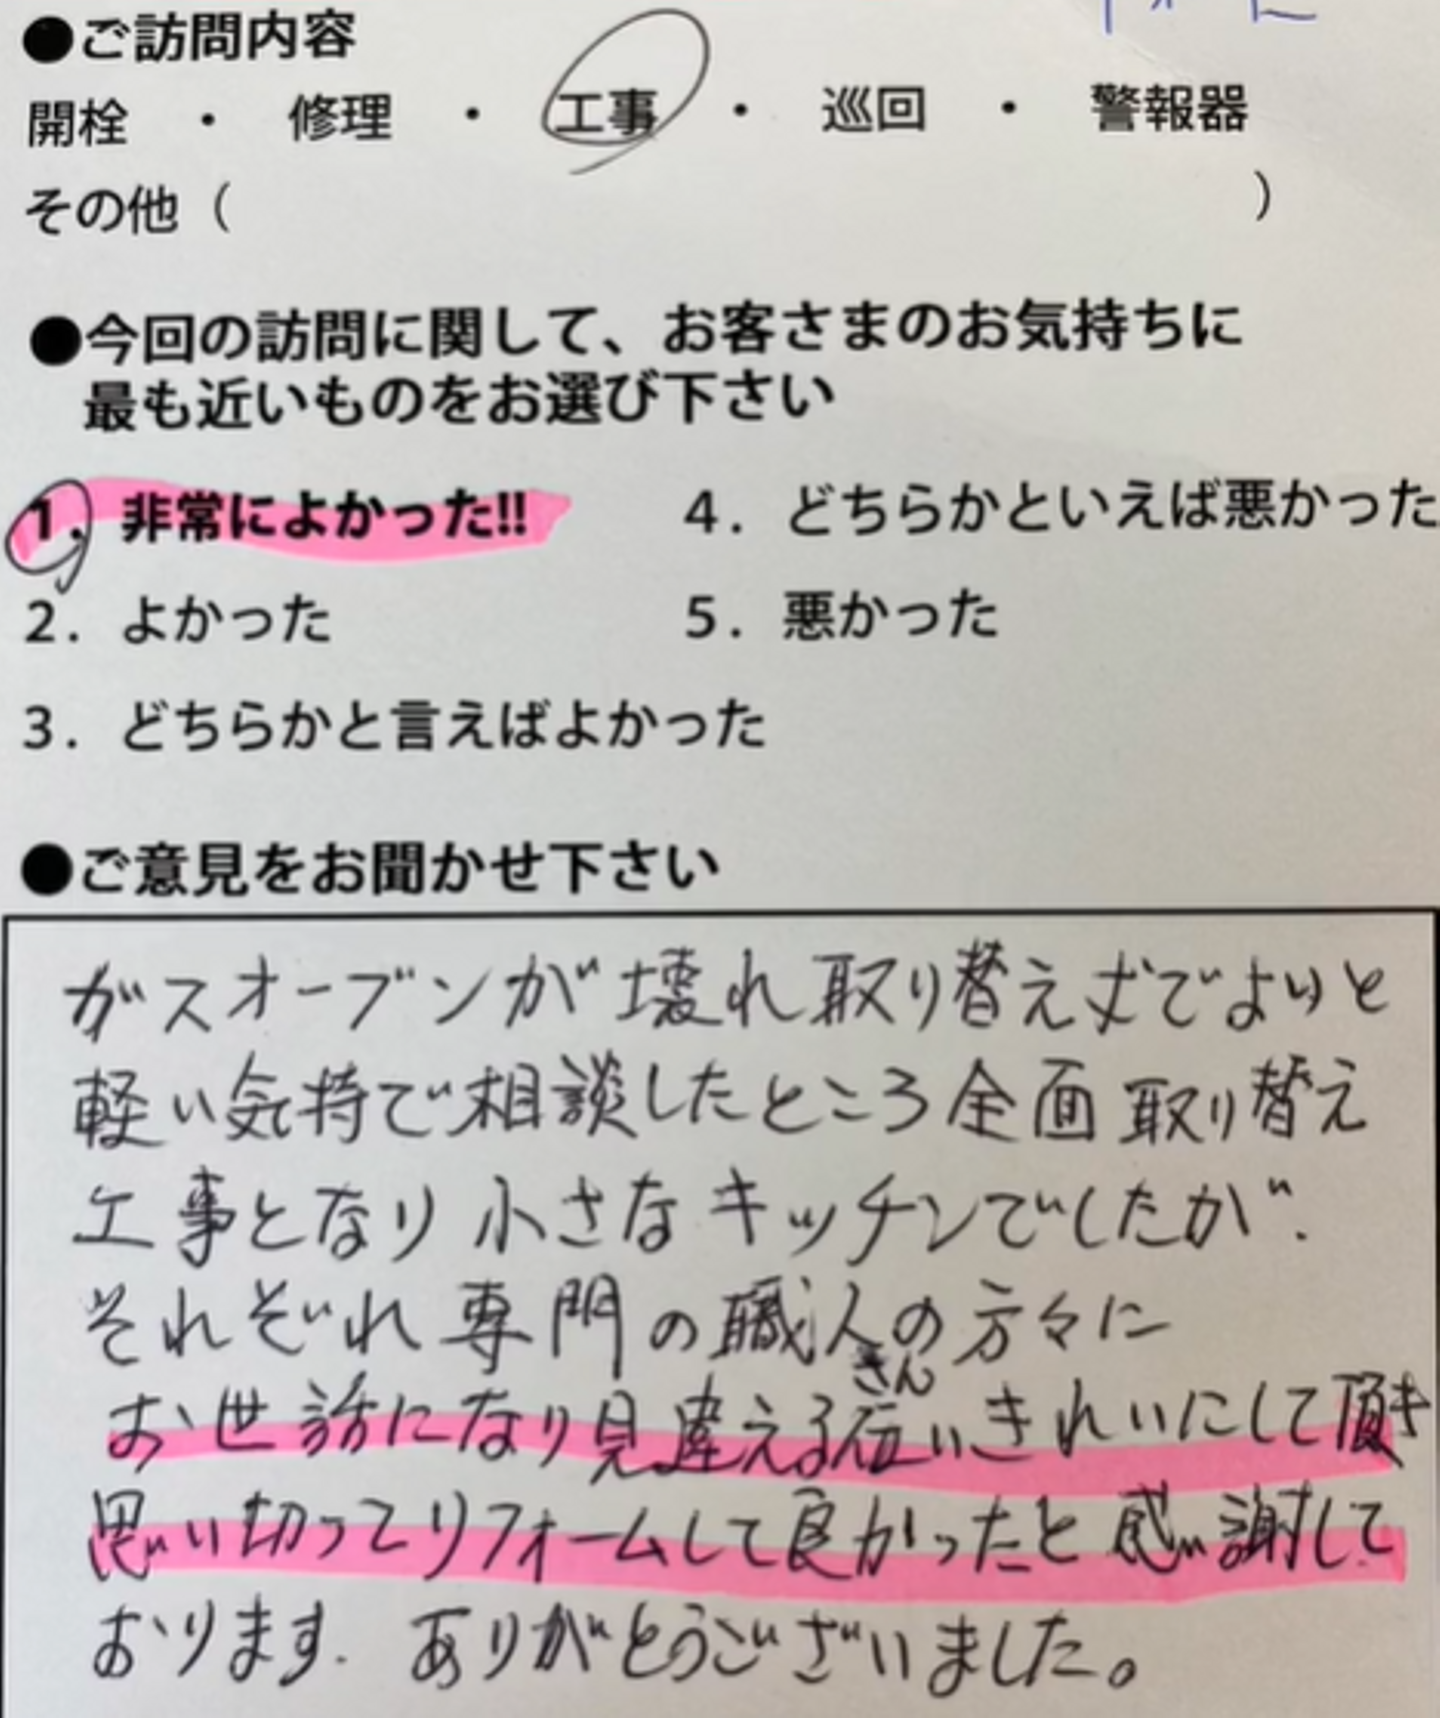 ●ご訪問内容
開栓 ・ 修理 ・ 工事 ・ 巡回 ・ 警報器
その他（ ）
●今回の訪問に関して、お客さまのお気持ちに
最も近いものをお選び下さい
1. 非常によかった!! 4. どちらかといえば悪かった
2. よかった 5. 悪かった
3. どちらかと言えばよかった
●ご意見をお聞かせ下さい
ガスオーブンが壊れ取り替え丈でよいと
軽い気持で相談したところ全面取り替え
工事となり小さなキッチンでしたが、
それぞれ専門の職人の方々に
さん
お世話になり見違える位いきれいにして頂き
思い切ってリフォームして良かったと感謝して
おります。ありがとうございました。